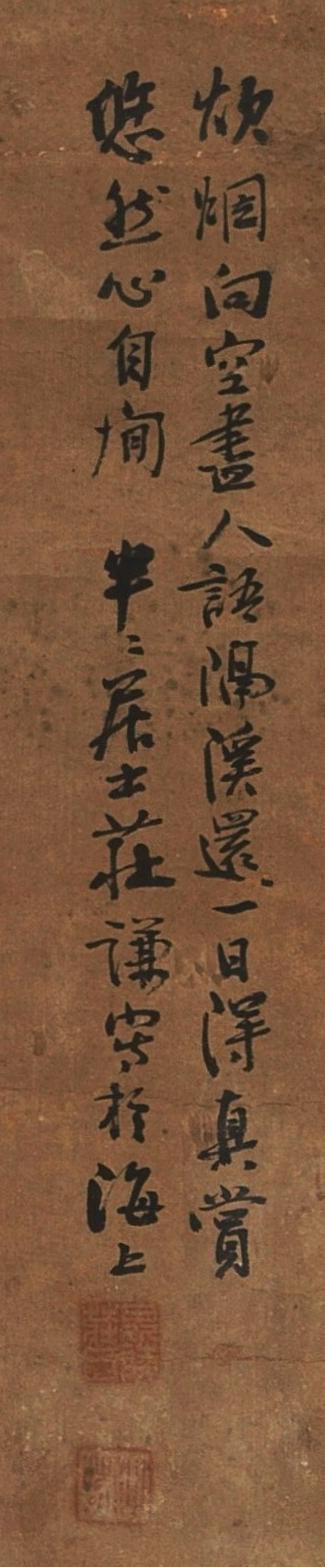 炊烟向空盡人語隔溪還一日得真賞
悠然心自閒　半〻居士莊謙寫於海上